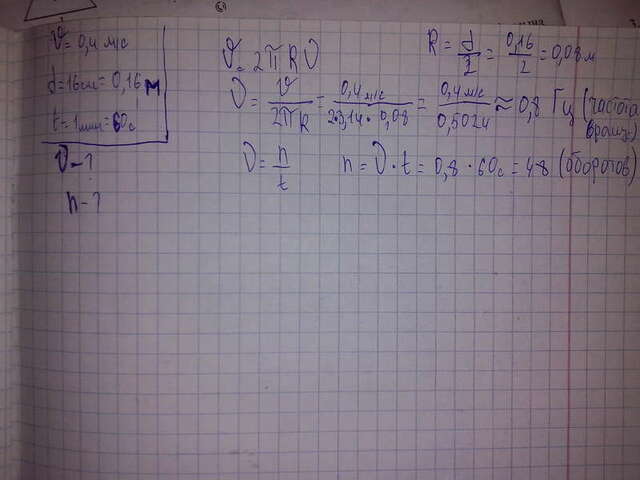 v = 0,4 м/с
d = 16 см = 0,16 м
t = 1 мин = 60 с
ν - ?
n - ?
v = 2πRν
R = d/2 = 0,16/2 = 0,08 м
ν = v/2πR = 0,4 м/с / 2·3,14·0,08 = 0,4 м/с / 0,5024 ≈ 0,8 Гц (частота
вращ.)
ν = n/t
n = ν·t = 0,8 · 60 с = 48 (оборотов)